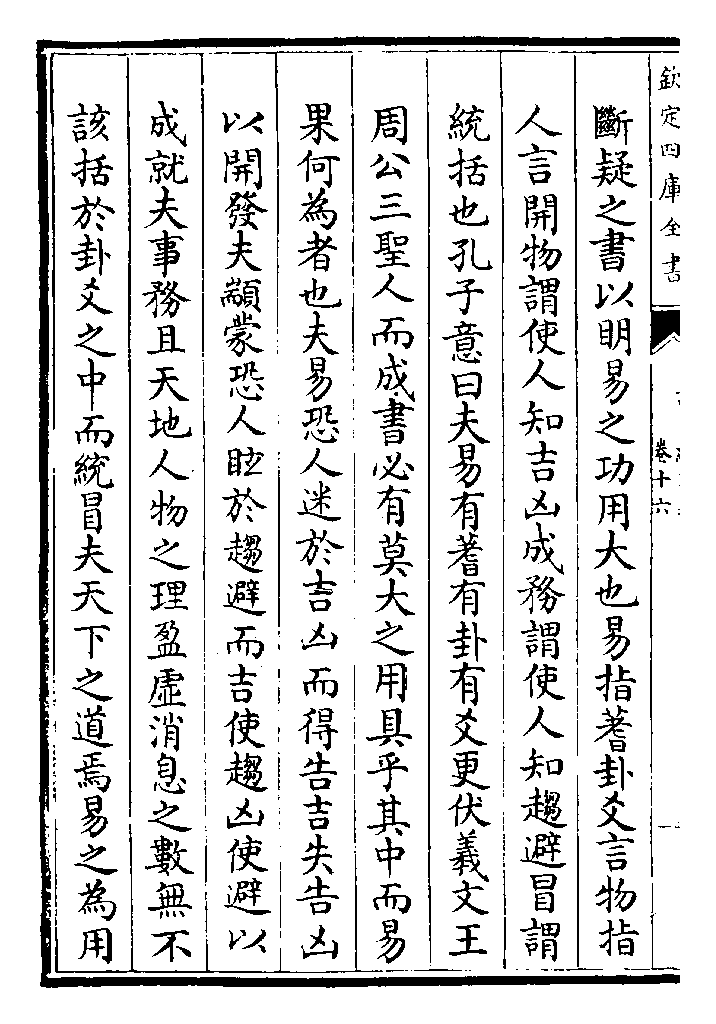 欽定四庫全書
卷十六
斷疑之書以明易之功用大也易指蓍卦爻言物指
人言開物謂使人知吉凶成務謂使人知趨避冒謂
統括也孔子意曰夫易有蓍有卦有爻更伏義文王
周公三聖人而成書必有莫大之用具乎其中而易
果何為者也夫易恐人迷於吉凶而得告吉失告凶
以開發夫顓蒙恐人眩於趨避而吉使趨凶使避以
成就夫事務且天地人物之理盈虛消息之數無不
該括於卦爻之中而統冒夫天下之道焉易之為用